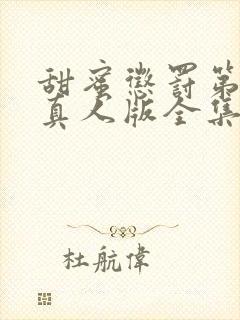 甜蜜懲罰第
真人版全集
杜航偉